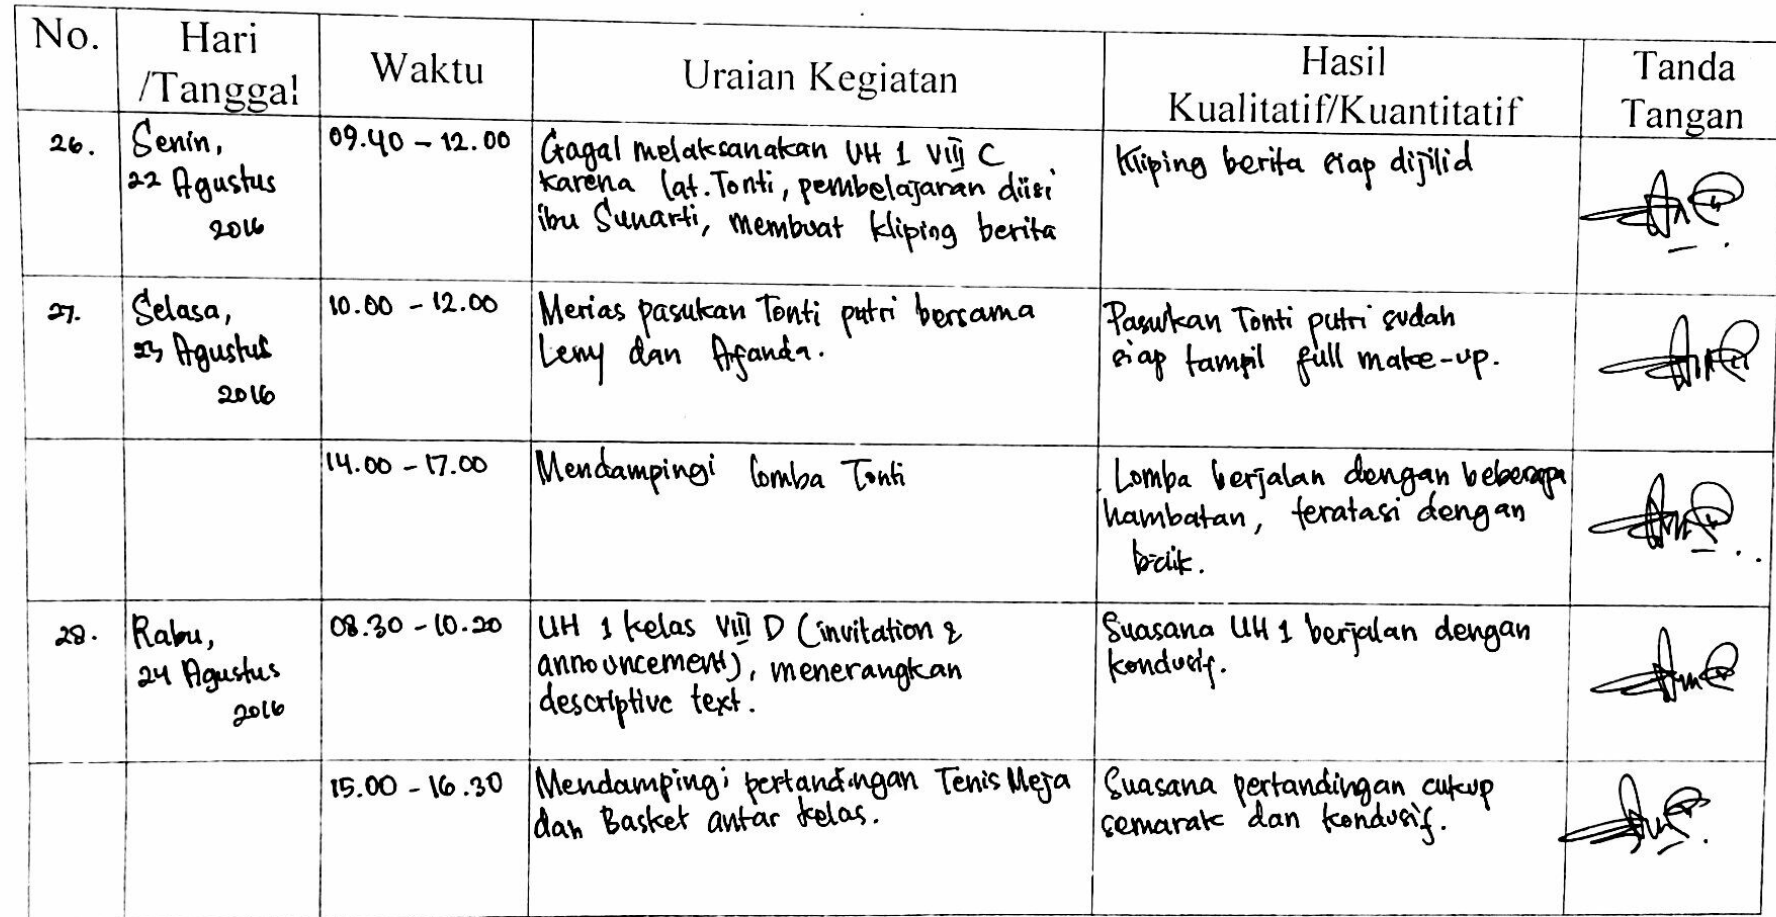 No. Hari /Tanggal Waktu Uraian Kegiatan Hasil Kualitatif/Kuantitatif Tanda Tangan
26. Senin, 22 Agustus 2016
09.40 - 12.00
Gagal melaksanakan UH 1 VIII C
karena lat. Tonti, pembelajaran diisi
ibu Sunarti, membuat kliping berita
Kliping berita siap dijilid
27. Selasa, 23 Agustus 2016
10.00 - 12.00
Merias pasukan Tonti putri bersama
Leny dan Afanda.
Pasukan Tonti putri sudah
siap tampil full make-up.
14.00 - 17.00
Mendampingi lomba Tonti
Lomba berjalan dengan beberapa
hambatan, teratasi dengan
baik.
28. Rabu, 24 Agustus 2016
08.30 - 10.20
UH 1 kelas VIII D (invitation &
announcement), menerangkan
descriptive text.
Suasana UH 1 berjalan dengan
kondusif.
15.00 - 16.30
Mendampingi pertandingan Tenis Meja
dan Basket antar kelas.
Suasana pertandingan cukup
semarak dan kondusif.